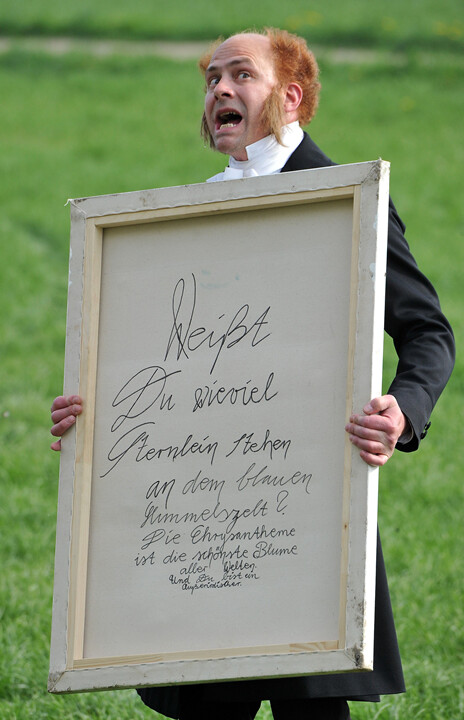 Weißt
Du wieviel
Sternlein stehen
an dem blauen
Himmelszelt?
Die Chrysantheme
ist die schönste Blume
aller Welten.
Und Du bist ein
Außerirdischer.